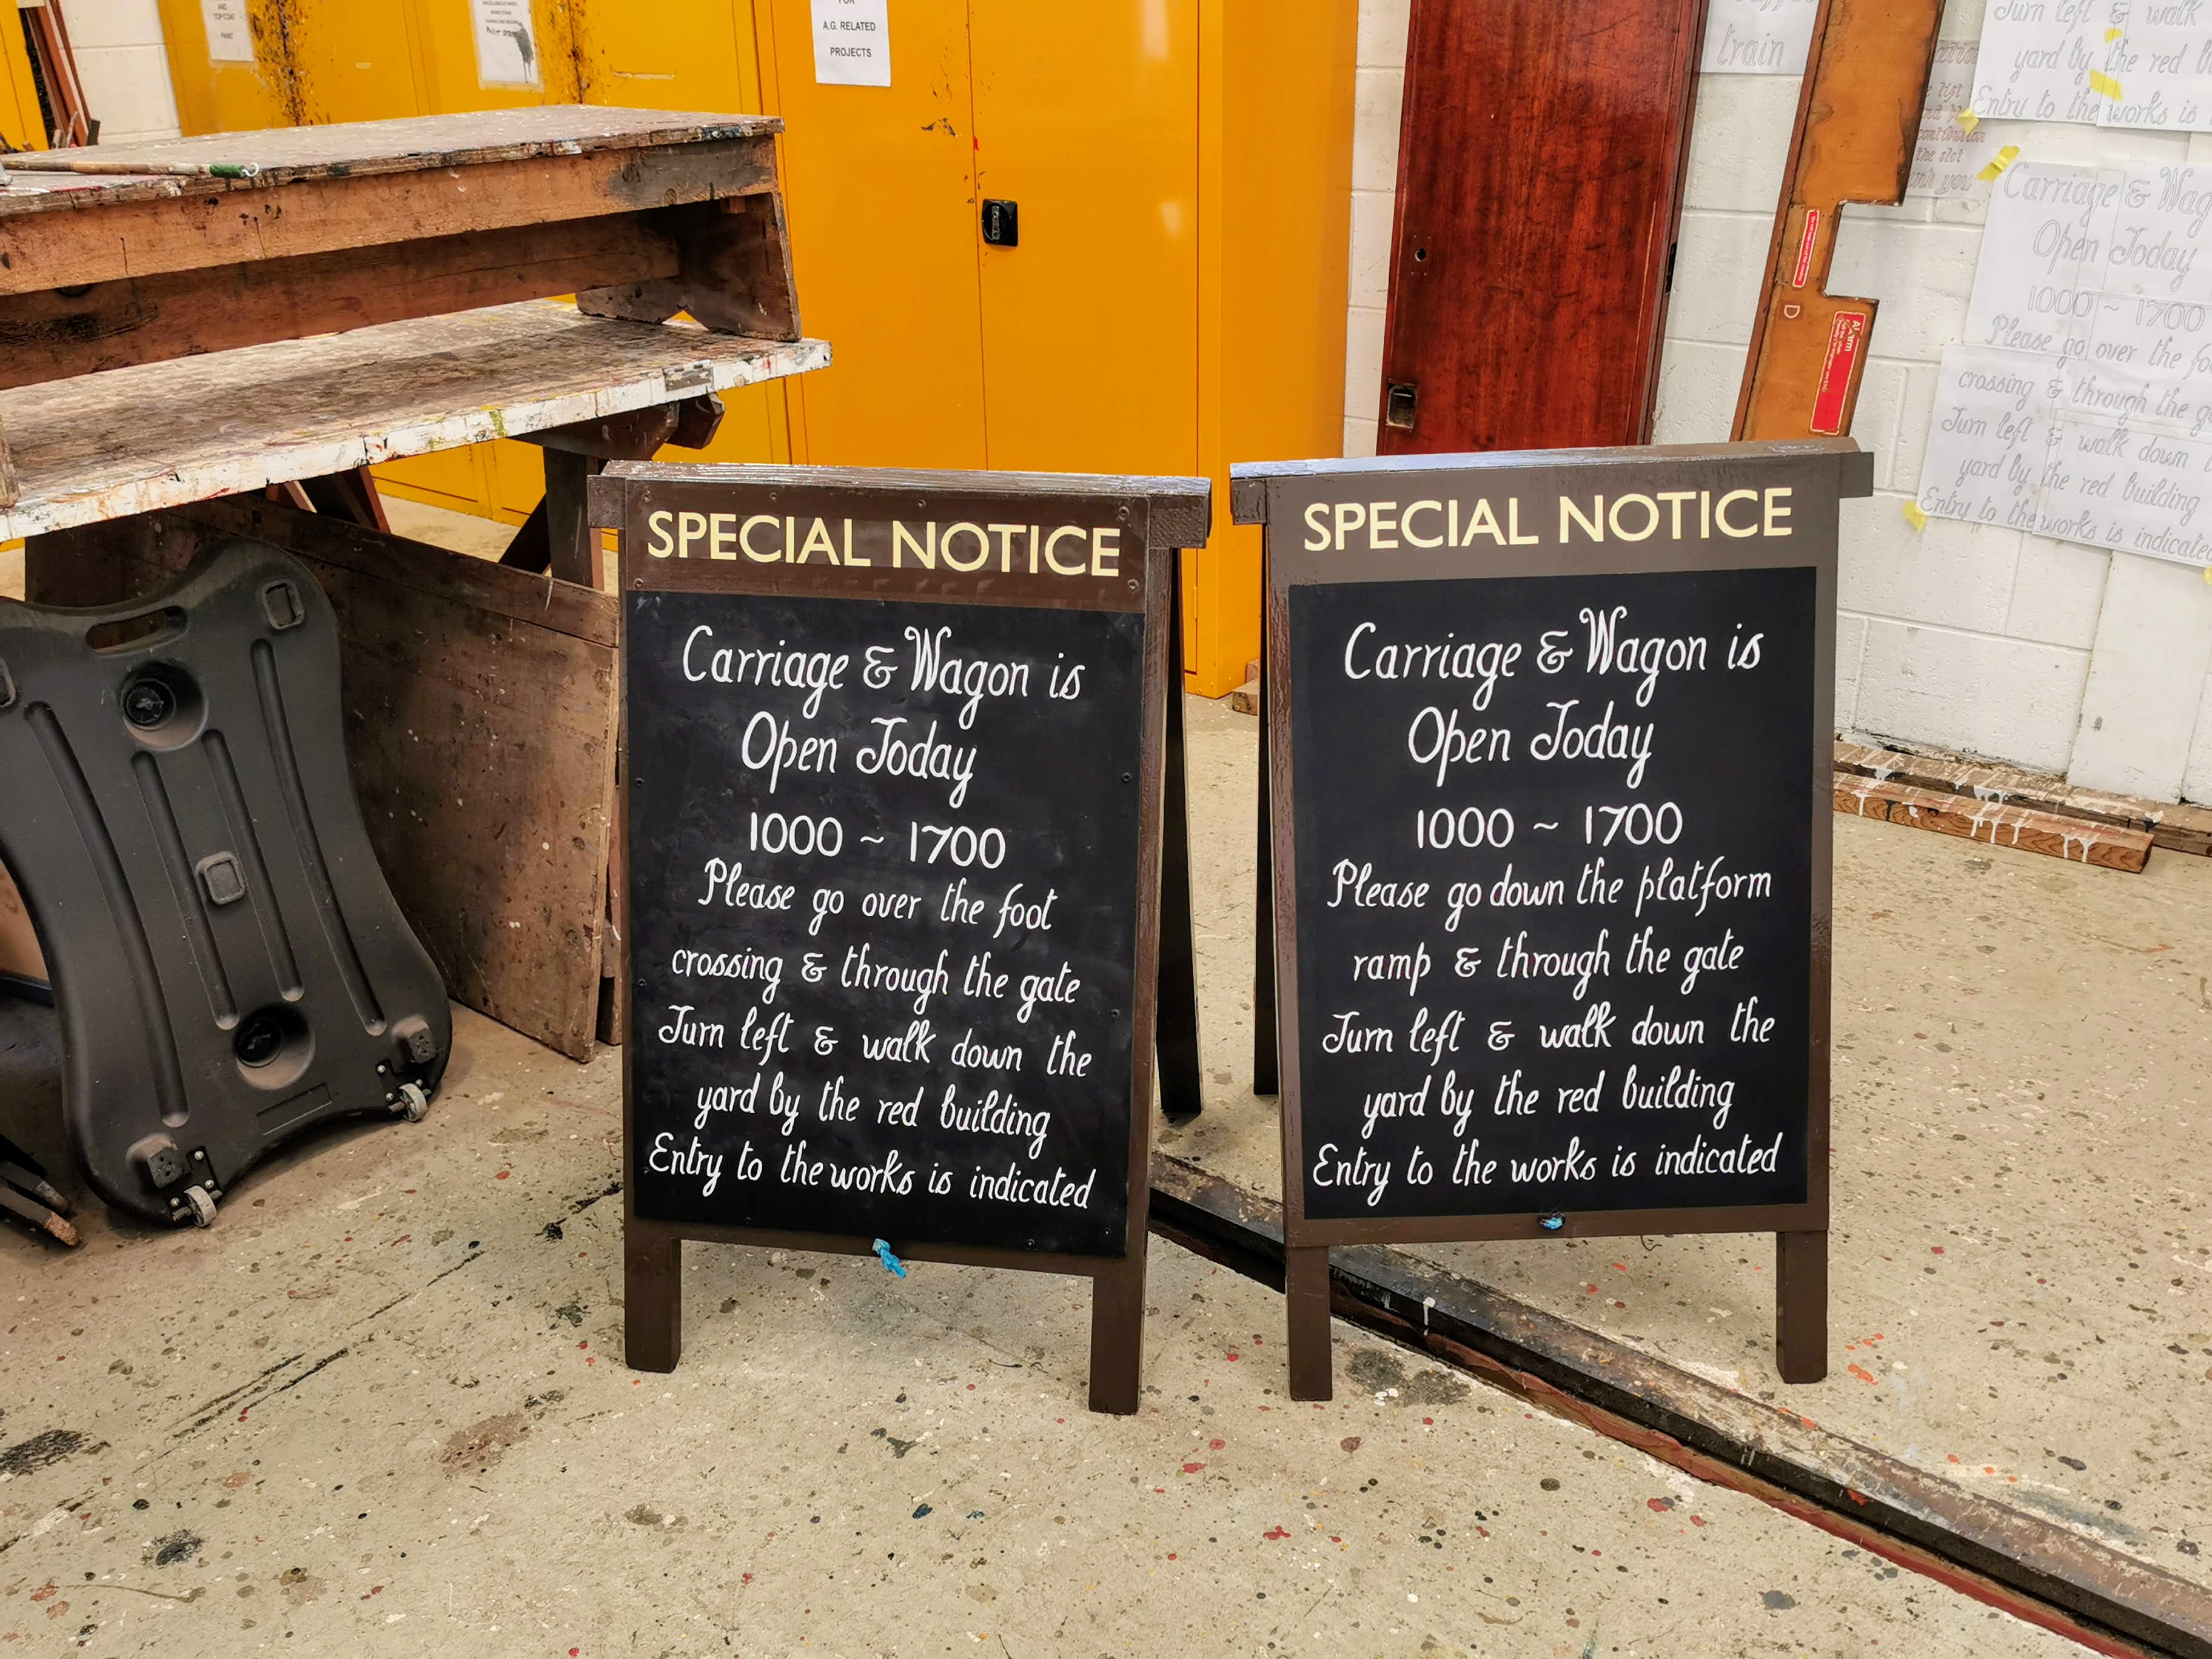 AND
TOP COAT
PAINT
A.G. RELATED
PROJECTS
train
Turn left & walk
yard by the red
Entry to the works is
contribution
the slot
you
Carriage &
Open Today
1000 ~ 1700
Please go over the
crossing & through the
Turn left & walk down
yard by the red building
Entry to the works is
Alarm
D
SPECIAL NOTICE
Carriage & Wagon is
Open Today
1000 ~ 1700
Please go over the foot
crossing & through the gate
Turn left & walk down the
yard by the red building
Entry to the works is indicated
SPECIAL NOTICE
Carriage & Wagon is
Open Today
1000 ~ 1700
Please go down the platform
ramp & through the gate
Turn left & walk down the
yard by the red building
Entry to the works is indicated